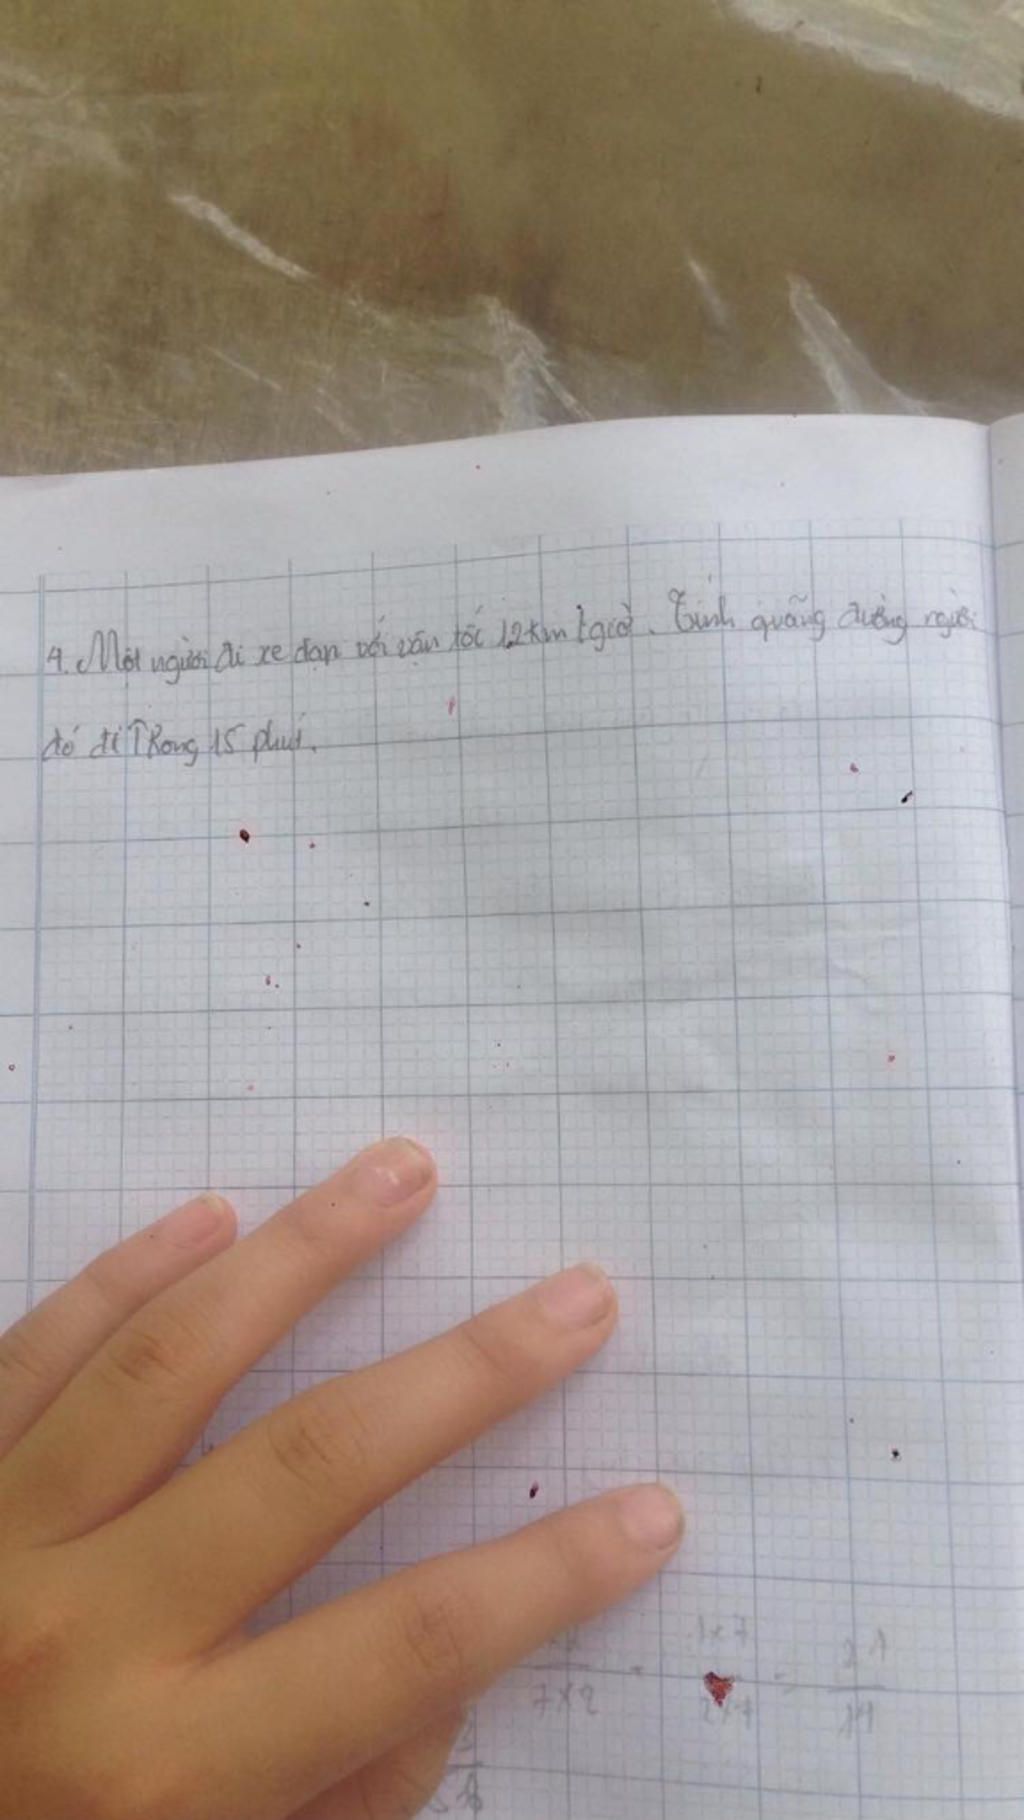 4. Một người đi xe đạp với vận tốc 12km/giờ. Tính quãng đường người
đó đi Trong 15 phút.
7x2 2x7 14